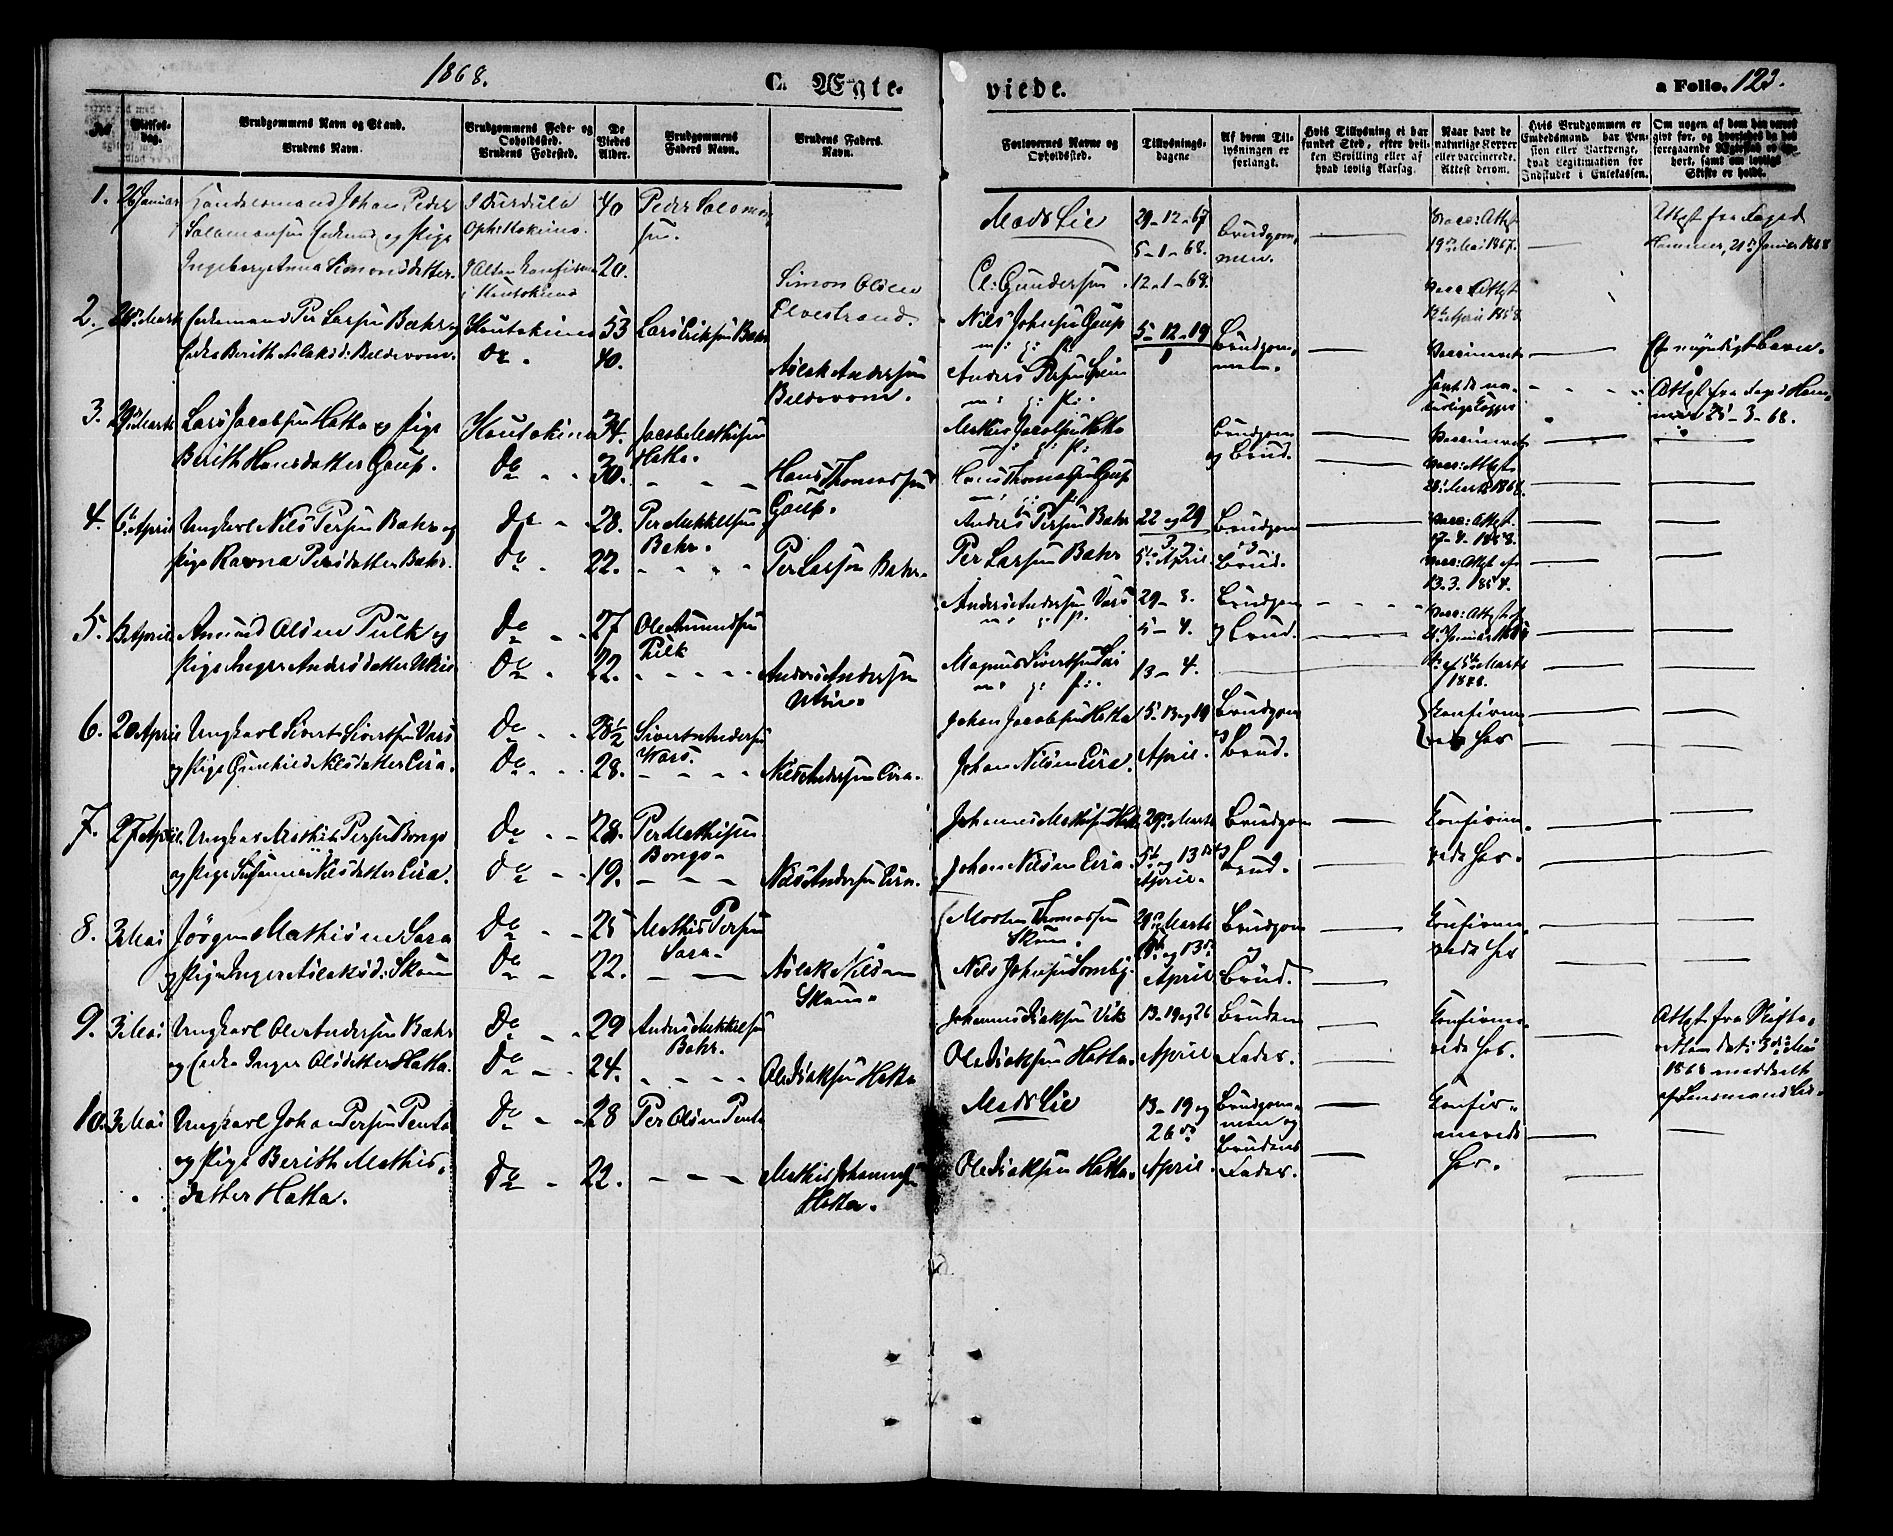 1868.
C. Ægte-
viede.
a Folio. 123.
No.
Vielses-
dag.
Brudgommens Navn og Stand.
Brudens Navn.
Brudgommens Føde- og
Opholdssted.
Brudens Fødested.
De
Viedes
Alder.
Brudgommens
Faders Navn.
Brudens Faders
Navn.
Forlovernes Navne og
Opholdssted.
Tillysnings-
dagene
Af hvem Til-
lysningen er
forlangt.
Hvis Tillysning ei har
fundet Sted, efter hvil-
ken Bevilling eller af
hvad lovlig Aarsag.
Naar havt de
naturlige Kopper
eller vaccinerede.
Attest derom.
Hvis Brudgommen er
Embedsmand, har Pen-
sion eller Vartpenge,
hvad Legitimation for
Indskudet i Enkekassen.
Om nogen af dem har været
gift før, og hvorledes da det
foregaaende Ægteskab er op-
hørt, samt om lovligt
Skifte er holdt.
1. 26 Januar Handelsmand Johan Peder
Salamonsen Enkemand og Pige
Ingeborg Anna Simonsdatter.
40 Peder Salomon-
sen.
20.
Simon Olsen
Elvestrand.
Mads Lie
29-12-67
5-1-68.
12-1-68.
Brudgom-
men.
Vacc: Attest
19de Mai 1867.
Attest fra Foged
Hammer, 21de Januar 1868
Cl: Gundersen.
Vacc Attest
2. Marts Enkemand Per Larsen Bæhr og
Enke Berith Aslaksd: Beldevom.
Koutokeino 53 Lars Eriksen Bæhr
Do. 40.
Aslak Andersen
Beldevom.
Nils Johnsen Gaup
m: g: p:
Anders Persen
m: g: p:
5-12-19
Brudgom-
men.
Vaccineret
havt de na-
turlige Kopper
Attest fra Foged Ham-
mer 25-3-68.
3. 29de Marts Lars Jacobsen Hætta og Pige
Berith Hansdatter Gaup.
Koutokeino 34. Jacob Mathisen
Hætta.
Do 30.
Hans Thomassen
Gaup.
Mathis Jacobsen Hætta
m: g: p:
Hans Thomassen Gaup
m: g: p:
Brudgom
og Brud.
Vaccineret
Vacc: Attest
28de Marts 1868.
4. 6te April Ungkarl Nils Persen Bæhr og
Pige Ravna Persdatter Bæhr.
Do 28. Per Mikkelsen
Bæhr.
Do 22.
Per Larsen Bæhr.
Anders Persen Bæhr
Per Larsen Bæhr
22 og 29
5te April
Brudgom
og
Brud.
Vacc: Attest.
Vacc: Attest af
13.3.1854.
5. 13 April Amund Olsen Pulk og
Pige Inger Andersdatter Utsi
Do 27 Ole Amundsen
Pulk
Do 22.
Anders Andersen
Utsi.
Anders Andersen Vars
m: g: p.
Magnus Sivertsen
m: g: p:
29-3.
5-4.
13-4.
Brudgom
og Brud.
Vacc: Attest
6. 20 April Ungkarl Sivert Sivertsen Vars
og Pige Gunhild Nilsdatter Eira.
Do 28½ Sivert Andersen
Vars.
Do 28.
Nils Andersen Eira.
Johan Jacobsen Hætta
Johan Nilsen Eira.
5. 13 og 19
April.
Brudgom
og
Brud.
Konfirme-
rede her
7. 27 April. Ungkar Mathis Persen Bongo
og Pige Susanna Nilsdatter Eira.
Do 28. Per Mathisen
Bongo.
Do 19.
Nils Andersen Eira.
Johannes Mathisen Hætta
Johan Nilsen Eira.
29de Marts
5te og 13de
April.
Brudgom
og
Brud.
Konfirme-
rede her.
8. 3 Mai Jørgen Mathisen Sara
og Pige Inger Aslaksd: Skum
Do 25 Mathis Persen
Sara.
Do 22.
Aslak Nilsen
Skum.
Morten Thomassen
Skum.
Nils Johnsen Somby.
29de Marts
5te og 13de
April
Brudgom
og
Brud.
Konfirme-
rede her
9. 3 Mai Ungkarl Ole Andersen Bæhr
og Enke Inger Olsdatter Hætta.
Do 29 Anders Mikkelsen
Bæhr.
Do 24.
Ole Isaksen Hætta
Johannes Isaksen Vik
Ole Isaksen Hætta.
13-19 og 26
April
Brudens
Fader.
Konfirme-
rede her.
Attest fra Skifte-
1868 meddelt
af Lensmand Lie.
10. 3 Mai Ungkarl Johan Persen Penta
og Pige Berith Mathis-
datter Hætta.
Do 28 Per Olsen Penta
Do 22.
Mathis Johannesen
Hætta.
Mads Lie
Ole Isaksen Hætta.
13-19 og
26de
April.
Brudgom-
men og
Brudens
Fader.
Konfir-
merede
her.